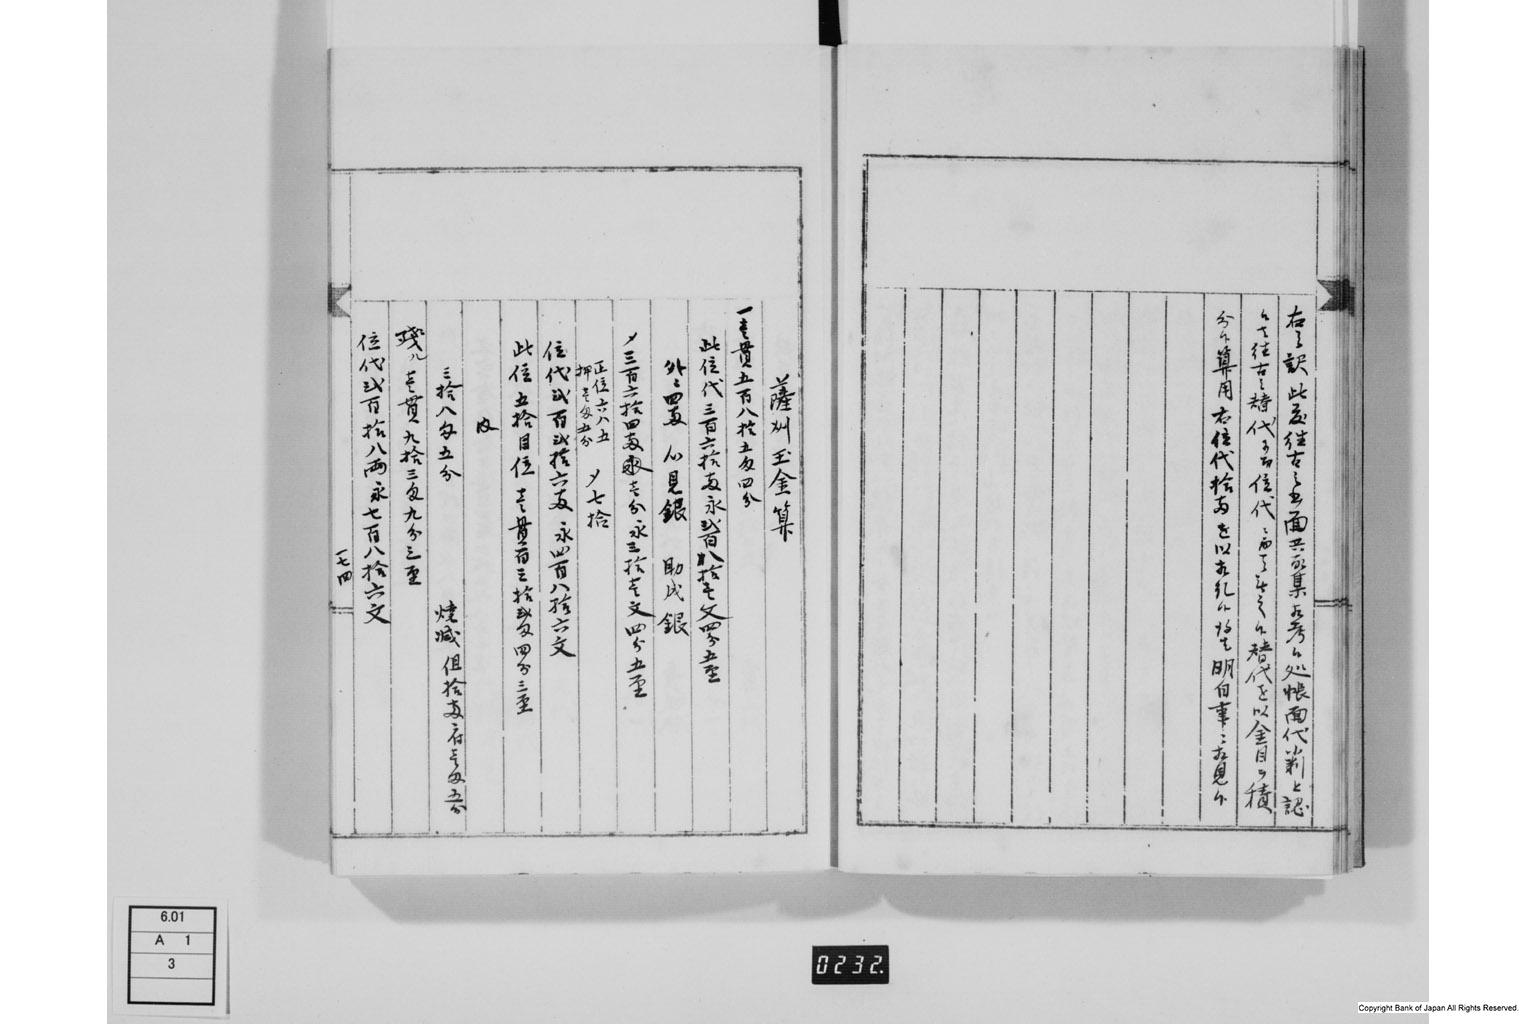 右之訳此度往古之書面共取集相考候処帳面代判上認
往古之替代 位代 替代を以金目 積
算用 右位代拾両を以相糺 明白事ニ相見候
薩州玉金算
一壱貫五百八拾五匁四分
此位代三百六拾両永弐百八拾壱文四分五厘
外ニ四両 心見銀 助成銀
〆三百六拾四両 壱分永三拾壱文四分五厘
正位六八五
押壱匁五分 〆七拾
位代弐百弐拾六両 永四百八拾六文
此位五拾目位 壱貫百三拾弐匁四分三厘
内
三拾八匁五分 焼減 但拾両ニ付壱匁五分
残ル 壱貫九拾三匁九分三厘
位代弐百拾八両永七百八拾六文
一七四
6.01
A 1
3
0232.
Copyright Bank of Japan All Rights Reserved.